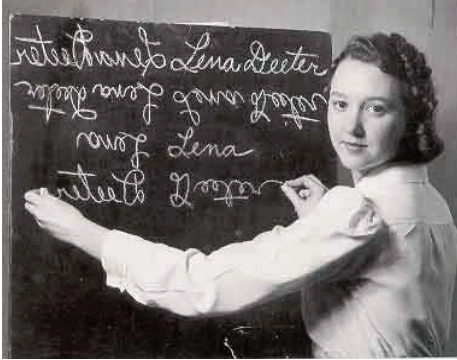 Lena Deeter Lena Deeter
Lena Deeter Lena Deeter
Lena Lena
Deeter Deeter